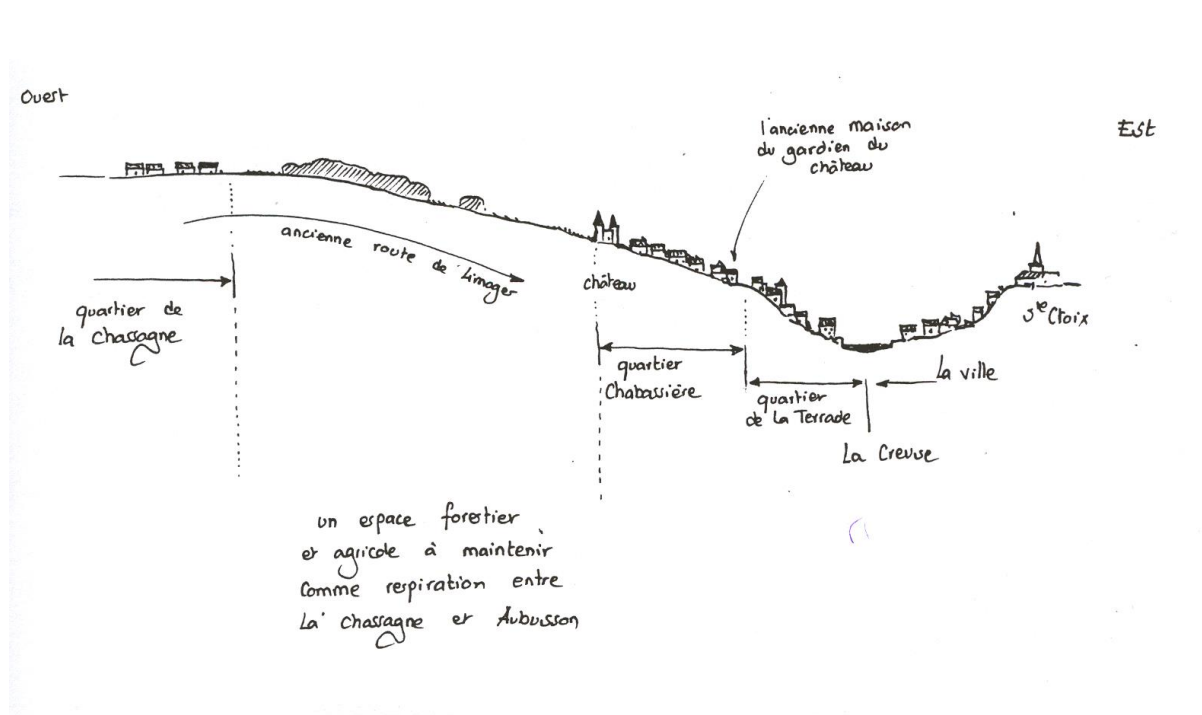 Ouest
Est
l'ancienne maison
du gardien du
château
ancienne route de Limoges
château
quartier de
la Chassagne
Ste Croix
quartier
Chabassière
La ville
quartier
de la Terrade
La Creuse
un espace forestier
et agricole à maintenir
comme respiration entre
La Chassagne et Aubusson